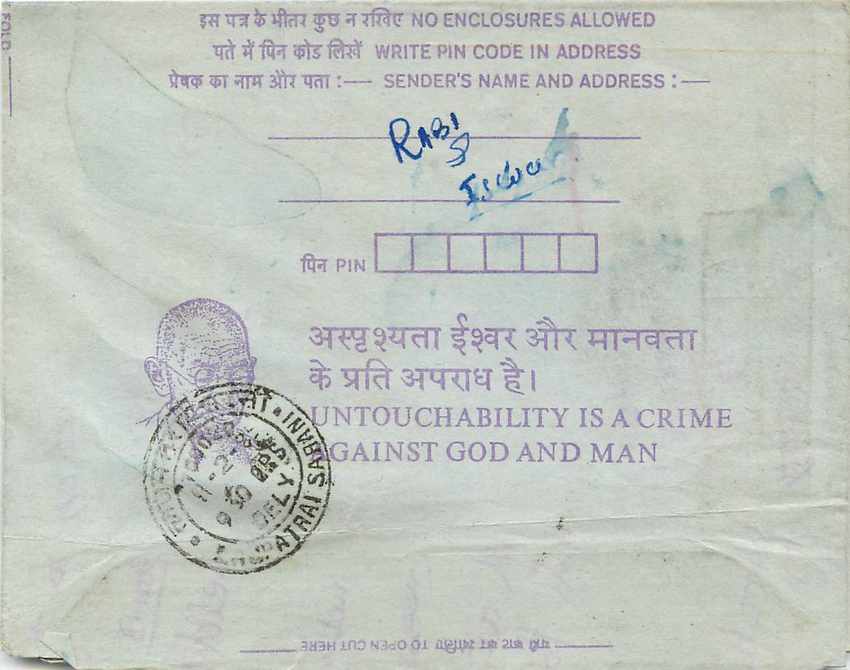 इस पत्र के भीतर कुछ न रखिए NO ENCLOSURES ALLOWED
पते में पिन कोड लिखें WRITE PIN CODE IN ADDRESS
प्रेषक का नाम और पता :— SENDER'S NAME AND ADDRESS :—
RABI
पिन PIN
अस्पृश्यता ईश्वर और मानवता
के प्रति अपराध है।
UNTOUCHABILITY IS A CRIME
AGAINST GOD AND MAN
LAJPATRAI SARANI
DELY
यहाँ काट कर खोलिए TO OPEN CUT HERE
FOLD